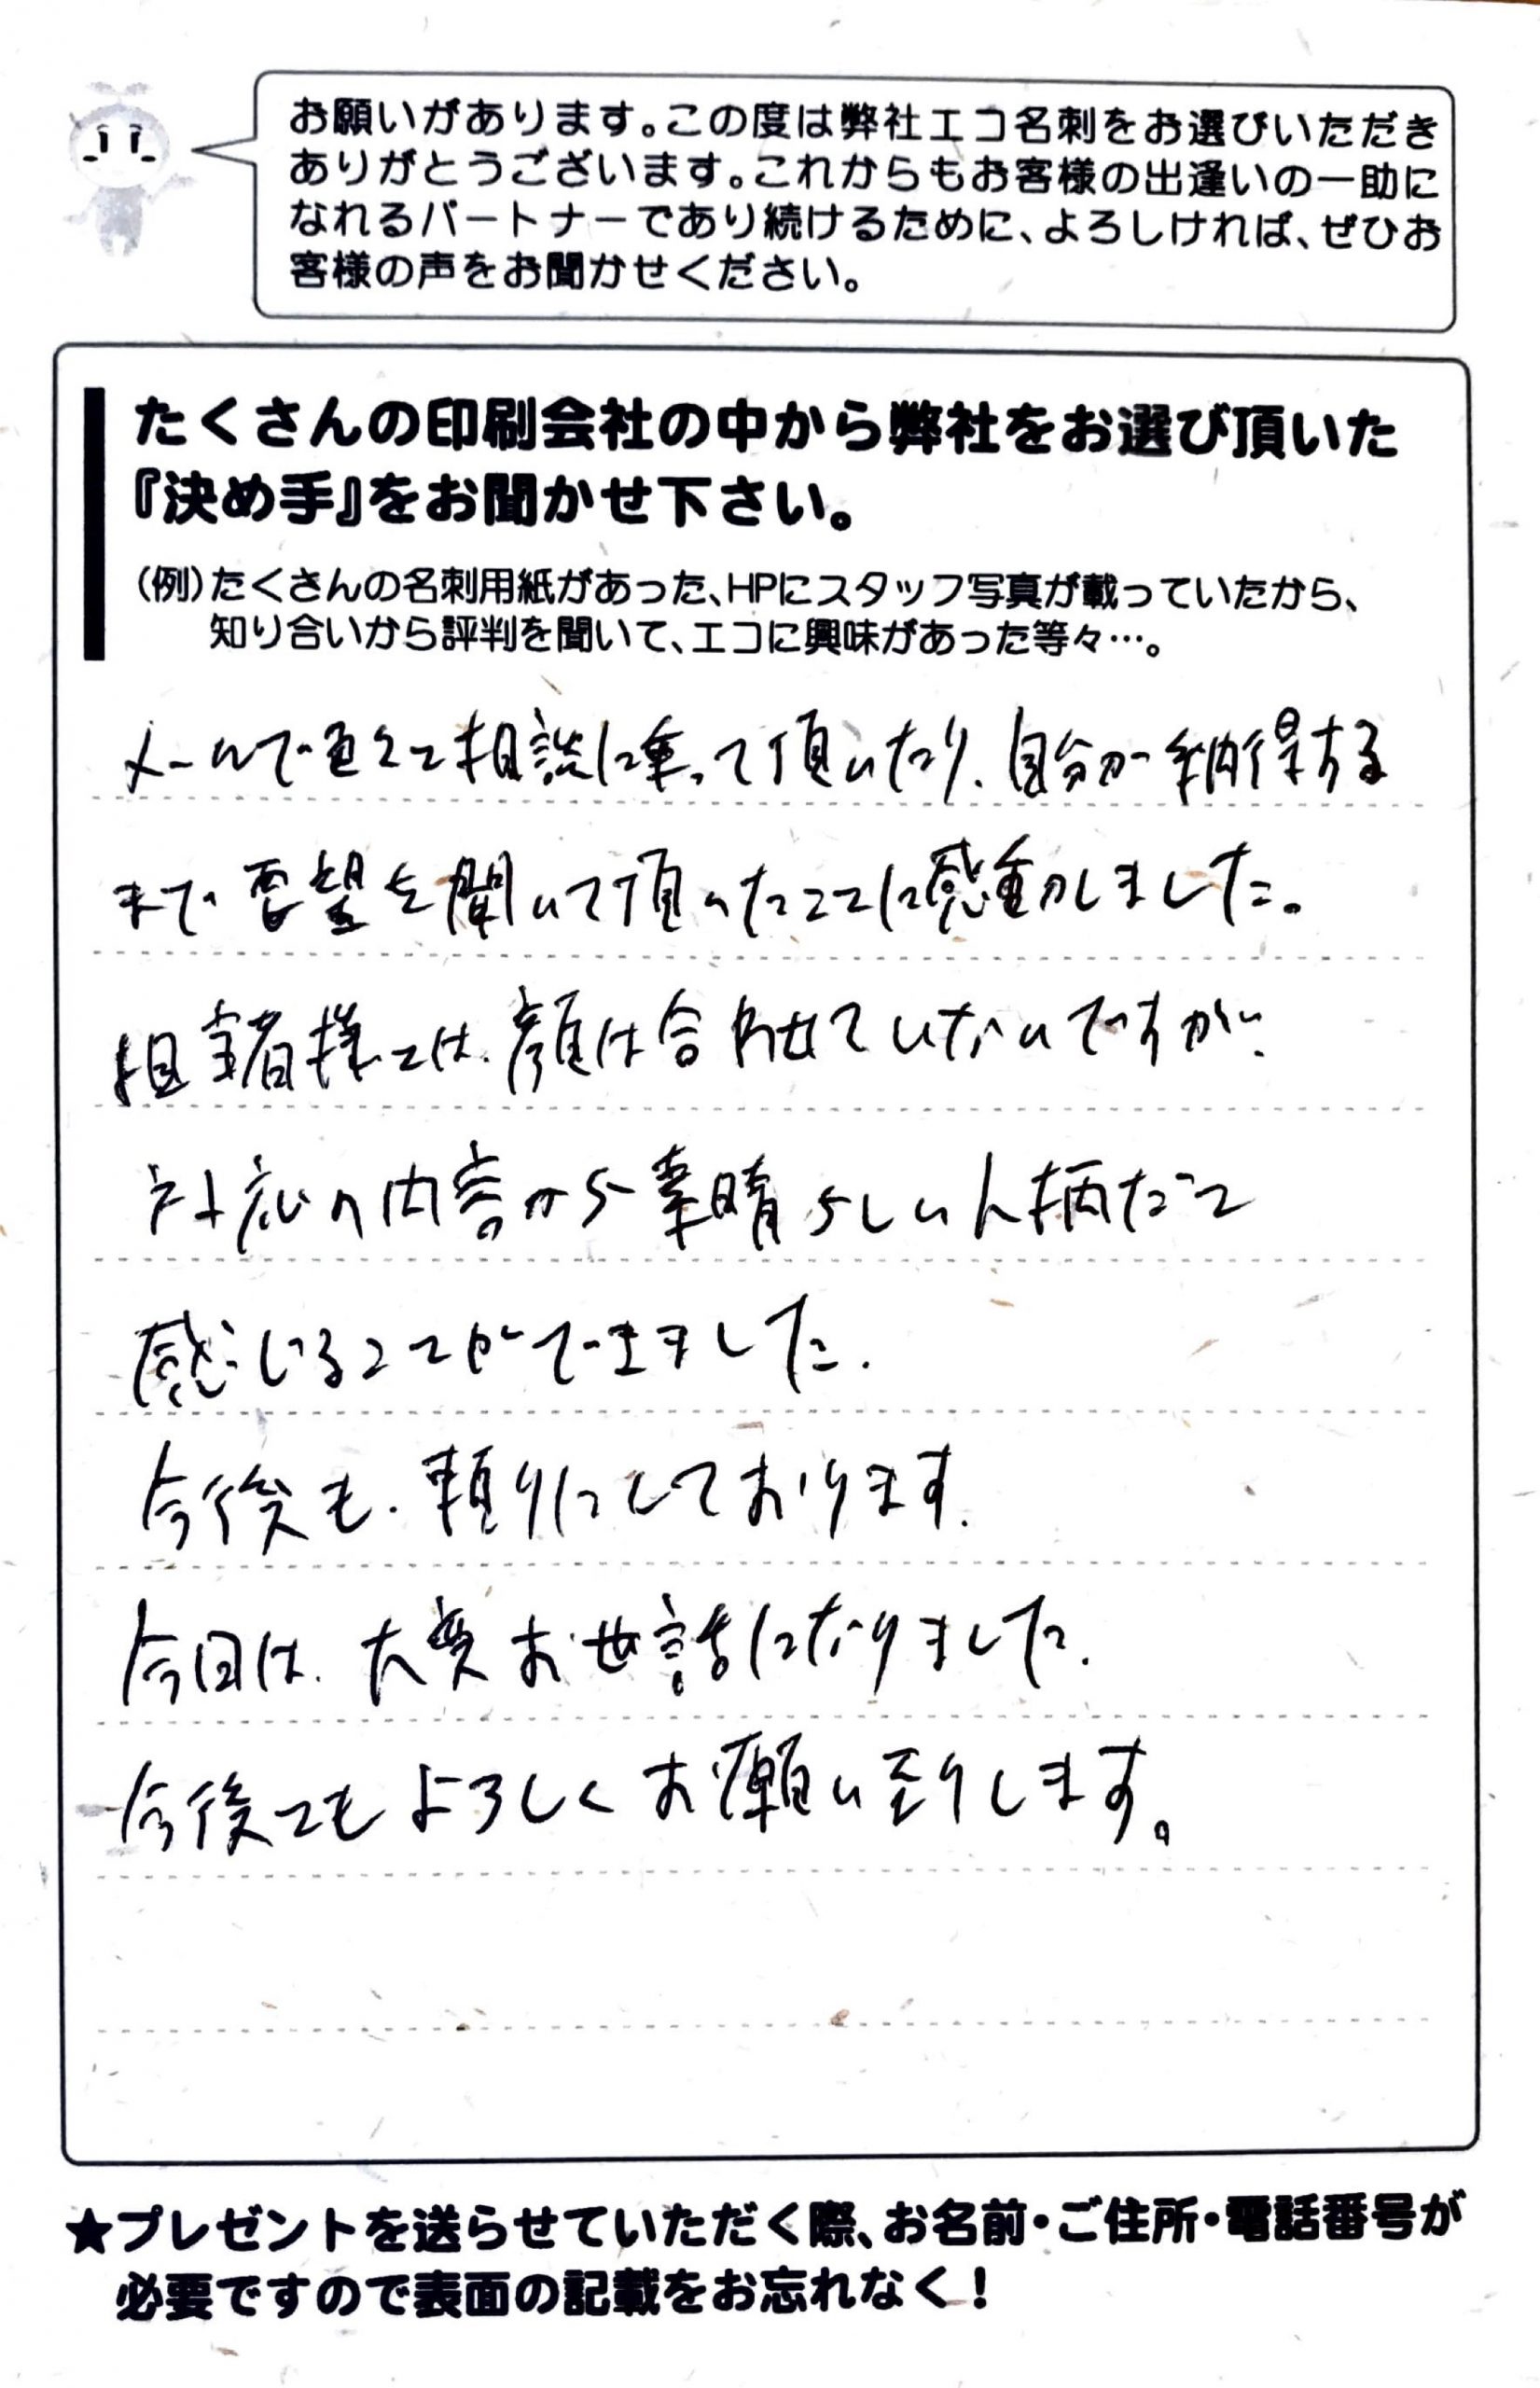 お願いがあります。この度は弊社エコ名刺をお選びいただき
ありがとうございます。これからもお客様の出逢いの一助に
なれるパートナーであり続けるために、よろしければ、ぜひお
客様の声をお聞かせください。
たくさんの印刷会社の中から弊社をお選び頂いた
『決め手』をお聞かせ下さい。
(例)たくさんの名刺用紙があった、HPにスタッフ写真が載っていたから、
知り合いから評判を聞いて、エコに興味があった等々…。
メールで色々と相談に乗って頂いたり、自分が納得する
まで要望を聞いて頂いたことに感動しました。
担当者様とは、顔は合わせていないですが、
対応の内容から素晴らしい人柄だと
感じることができました。
今後も、頼りにしております。
今回は、大変お世話になりました。
今後ともよろしくお願い致します。
★プレゼントを送らせていただく際、お名前・ご住所・電話番号が
必要ですので表面の記載をお忘れなく！